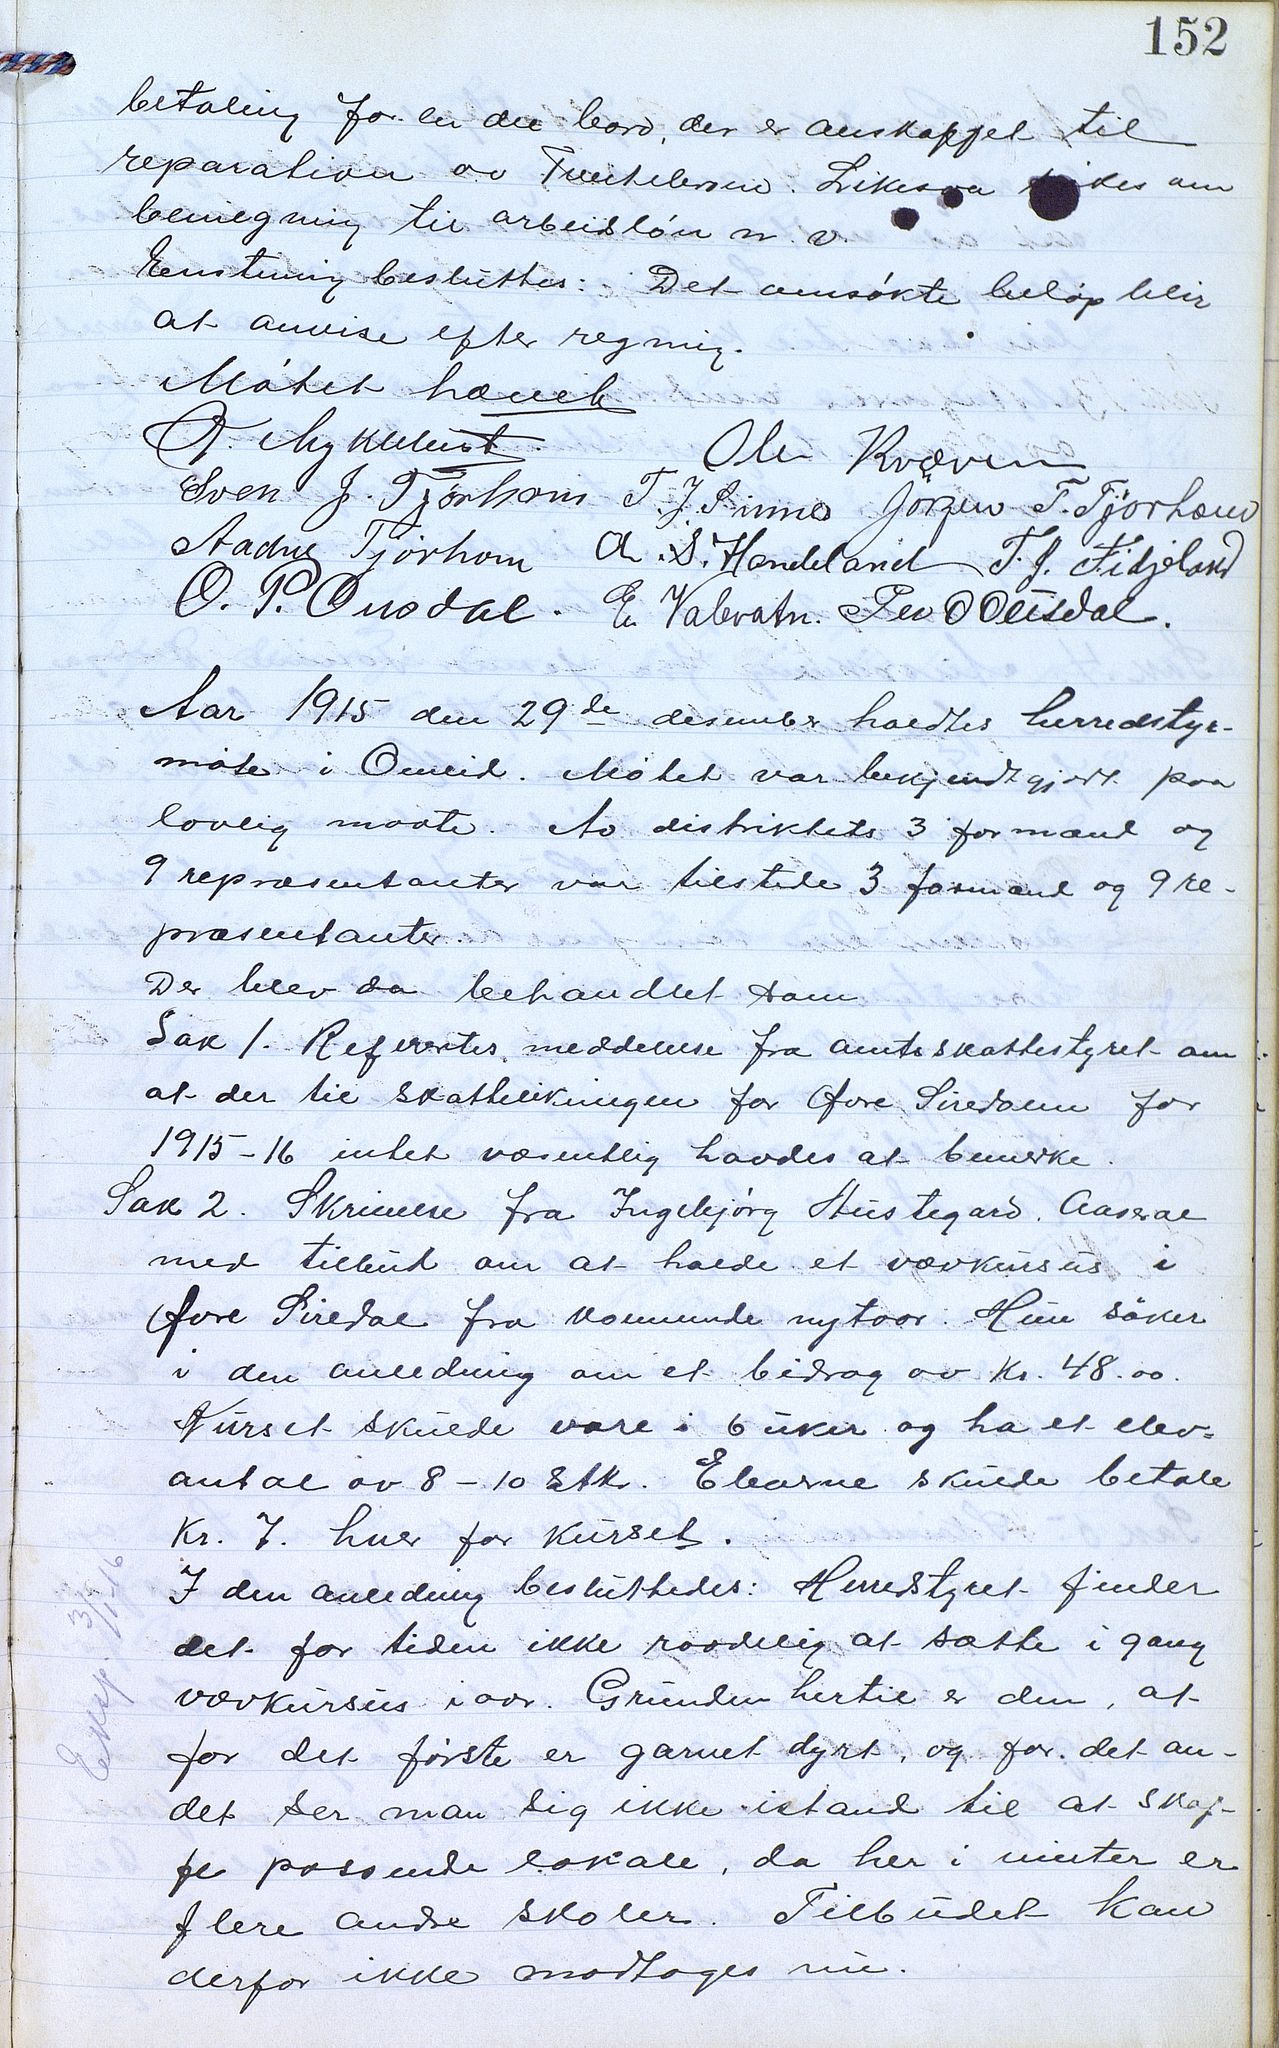 152
betaling for en del bord, der er anskaffet til
reparation av . Likesaa søkes om
bevilgning til arbeidsløn m. v.
Enstemmig besluttes: Det omsøkte beløp blir
at anvise efter regning.
Møtet hævet
O. Nyklemst Ole Kvæven
Sven J. Tjørhom T. J. Sinnes Jørgen T. Tjørhom
Aadne Tjørhom A. S. Handeland T. J. Fidjeland
O. P. Ousdal. E. Valevatn. Peder O Ousdal.
Aar 1915 den 29de desember holdtes herredstyr-
møte i Omlid. Møtet var bekjendtgjort paa
lovlig maate. Av distriktets 3 formænd og
9 repræsentanter var tilstede 3 formænd og 9 re-
præsentanter.
Der blev da behandlet som
Sak 1. Refereres meddelelse fra amtsskattestyret om
at der til skattelikningen for Øvre Siredalen for
1915-16 intet væsentlig havdes at bemerke.
Sak 2. Skrivelse fra Ingebjørg Hustegard, Aaseral
med tilbud om at holde et vævkursus i
Øvre Siredal fra kommende nytaar. Hun søker
i den anledning om et bidrag av kr. 48.00.
Kurset skulde vare i 6 uker og ha et elev-
antal av 8-10 stkr. Elevene skulde betale
kr. 7. hver for kurset.
I den anledning besluttedes: Herredstyret finder
det for tiden ikke raadelig at sætte i gang
vævkursus i aar. Grunden hertil er den, at
for det første er garnet dyrt, og for det an-
det ser man sig ikke istand til at skaf-
fe passende lokale, da her i vinter er
flere andre skoler. Tilbudet kan
derfor ikke modtages nu.
Eksp. 3/1-16